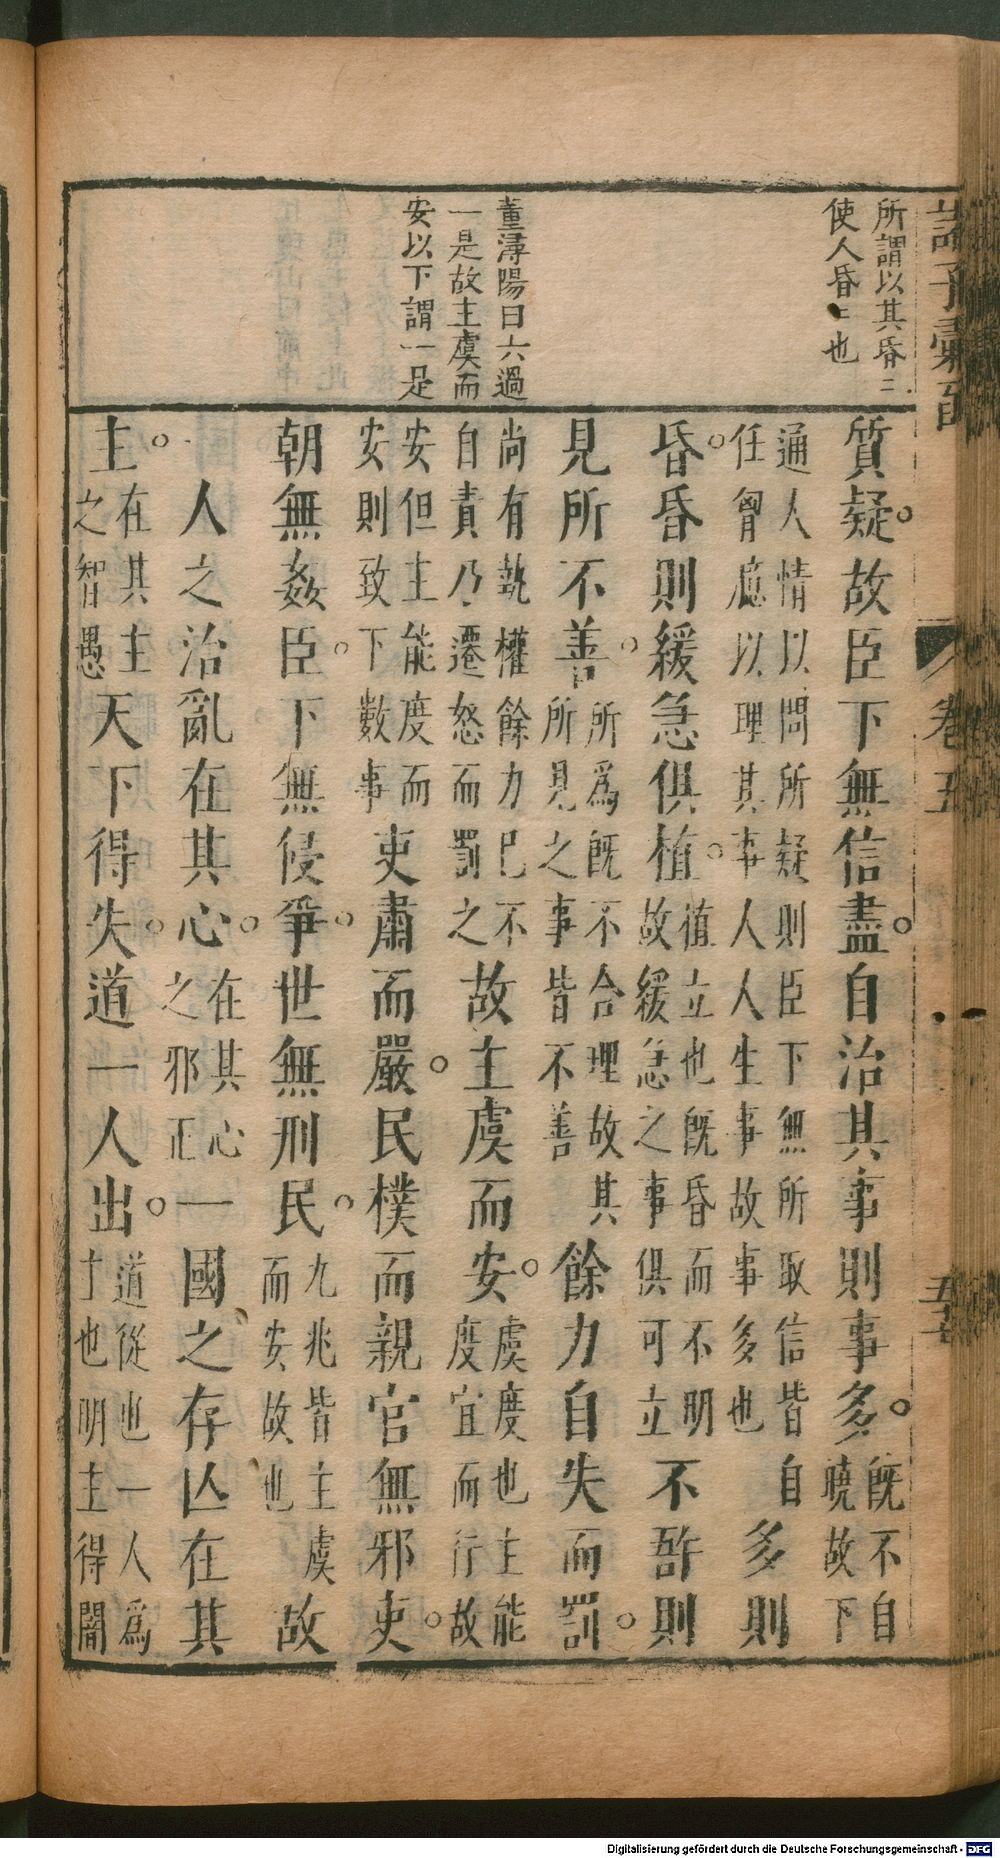 所謂以其昏〻
使人昏〻也
董潯陽曰六過
一是故主虞而
安以下謂一是
質疑故臣下無信盡自治其事則事多既不自曉故下
通人情以問所疑則臣下無所取信皆自任胷應以理其事人人生事故事多也多則
昏昏則緩急俱植植立也既昏而不明故緩急之事俱可立不嚭則
見所不善所爲既不合理故其所見之事皆不善餘力自失而罰
尚有執權餘力已不自責乃遷怒而罰之故主虞而安虞度也主能度宜而行故
安但主能度而安則致下數事吏肅而嚴民樸而親官無邪吏
朝無姦臣下無侵爭世無刑民九兆皆主虞而安故也故
人之治亂在其心在其心之邪正一國之存亾在其
主在其主之智愚天下得失道一人出道從也一人爲主也明主得闇
卷五
五十七
Digitalisierung gefördert durch die Deutsche Forschungsgemeinschaft - DFG